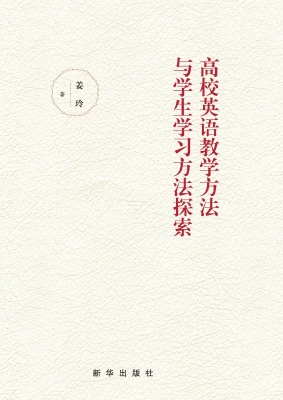 高校英语教学方法
与学生学习方法探索
姜玲
著
新华出版社